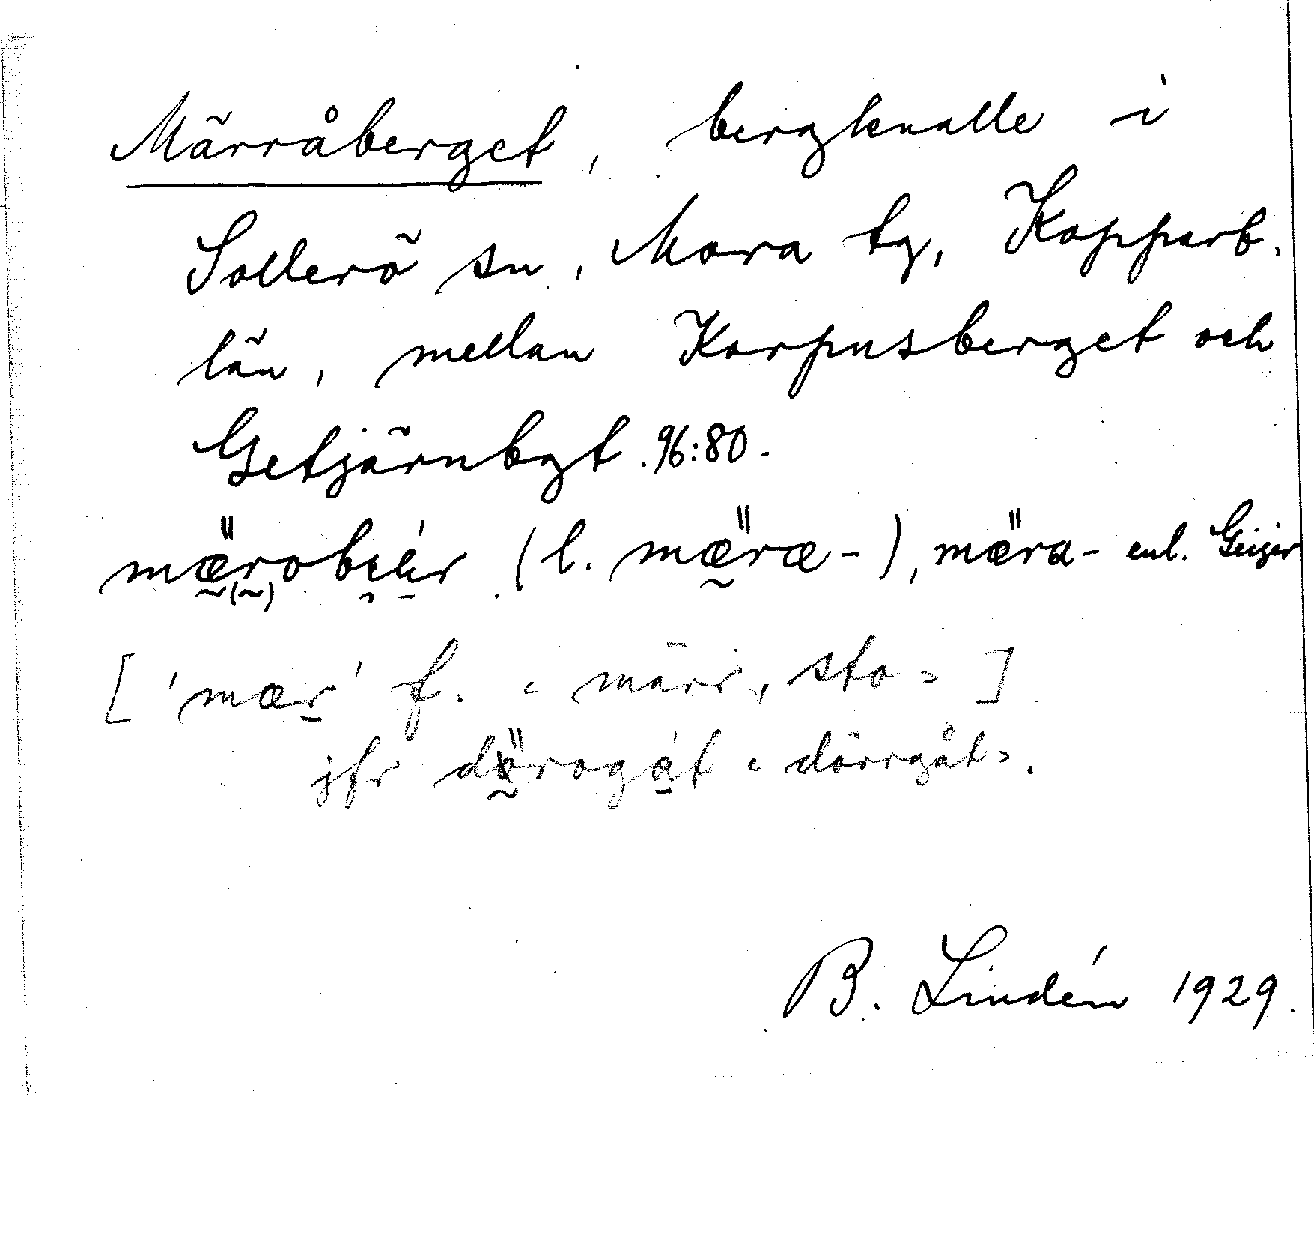 Märråberget, bergknalle i
Sollerö sn, Mora tg, Kopparb.
län, mellan Korpusberget och
Getjärnbgt. 96:80.
mæ̰̈robe̩ér (l. mæ̰̈ræ-), mæ̈ra- enl. Geijer
['mær̲' f. "märr, sto"]
jfr dö̰̈rogát "dörrgåt".
B. Lindén 1929.